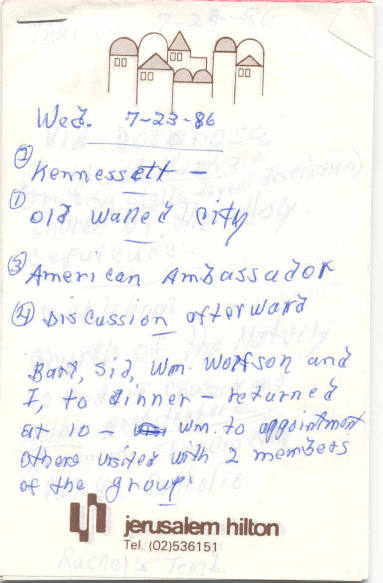 Wed. 7-23-86
② Kennessett -
① Old Walled City
③ American Ambassador
④ Discussion afterward
Bart, Sid, Wm. Wolfson and
I, to dinner - returned
at 10 - Wm. to appointment
others visited with 2 members
of the group.
jerusalem hilton
Tel. (02)536151
Rachel's Tomb